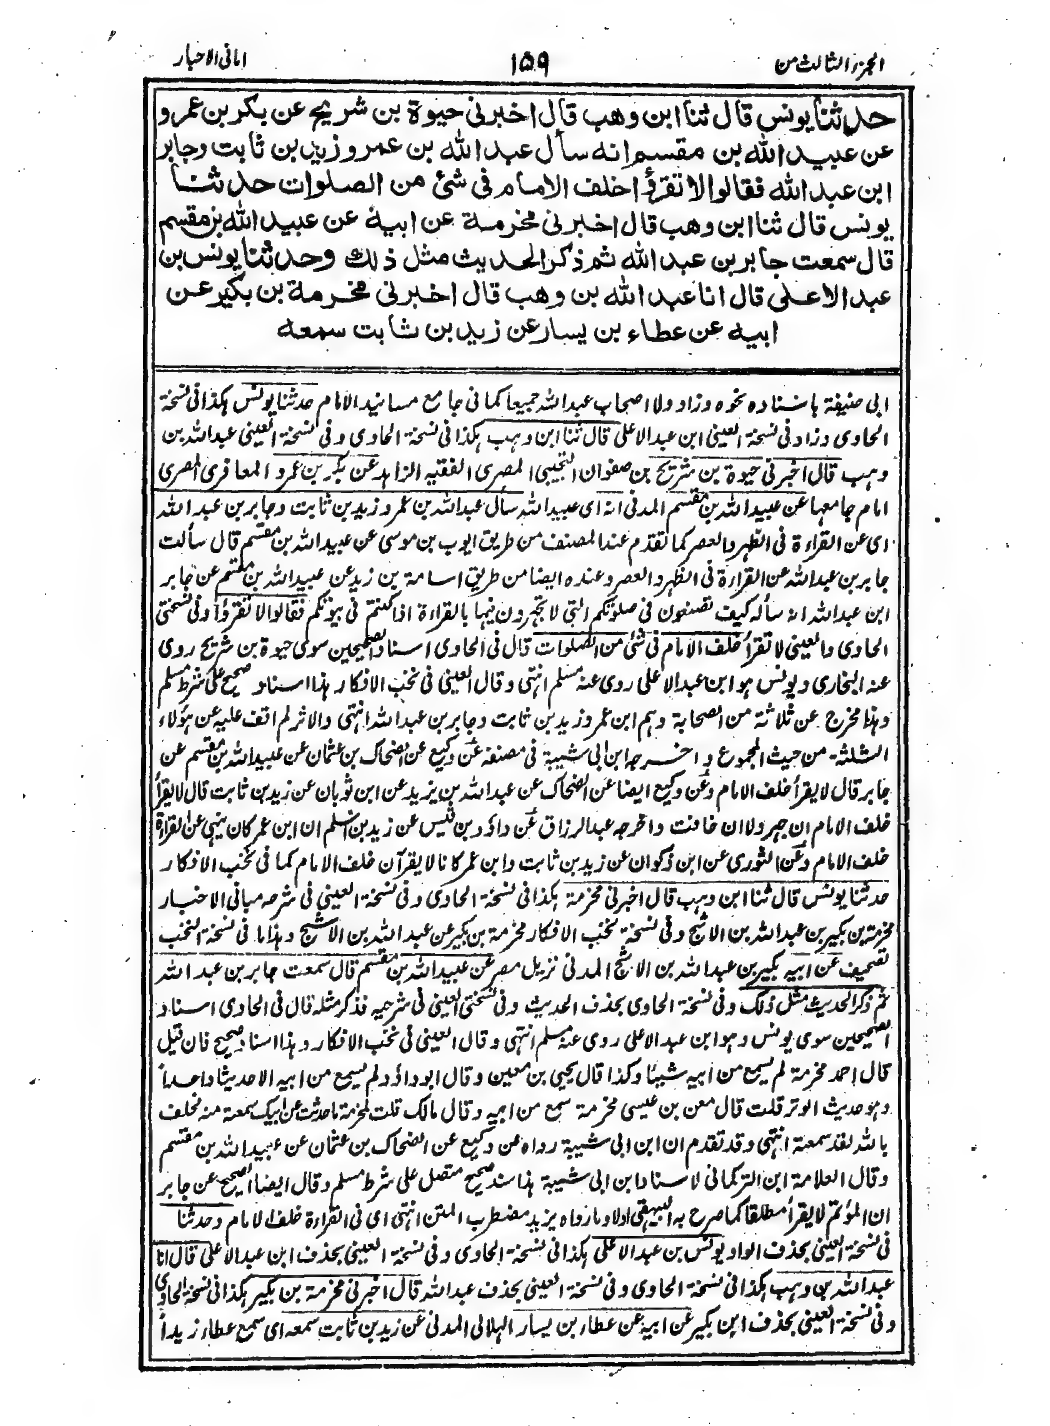 الجزء الثالث من
١٥٩
امانی الاحبار
حدثنا يونس قال ثنا ابن وهب قال اخبرنی حيوة بن شريح عن بكر بن عمرو
عن عبيد الله بن مقسم انه سأل عبد الله بن عمر وزيد بن ثابت وجابر
ابن عبد الله فقالوا لا تقرأ خلف الامام فی شئ من الصلوات حدثنا
يونس قال ثنا ابن وهب قال اخبرنی مخرمة عن ابيه عن عبيد الله بن مقسم
قال سمعت جابر بن عبد الله ثم ذكر الحديث مثل ذلك وحدثنا يونس بن
عبد الاعلی قال انا عبد الله بن وهب قال اخبرنی مخرمة بن بكير عن
ابيه عن عطاء بن يسار عن زيد بن ثابت سمعه
ابی حنيفة باسناده نحوه وزاد ولا اصحاب عبد الله جميعا كما فی جامع مسانيد الامام حدثنا يونس هكذا فی نسخة
الحاوی وزاد فی نسخة العينی ابن عبد الاعلی قال ثنا ابن وهب هكذا فی نسخة الحاوی وفی نسخة العينی عبد الله بن
وهب قال اخبرنی حيوة بن شريح بن صفوان التجيبی المصری الفقيه الزاهد عن بكر بن عمرو المعافری المصری
امام جامعها عن عبيد الله بن مقسم المدنی انه ای عبيد الله سأل عبد الله بن عمر وزيد بن ثابت وجابر بن عبد الله
ای عن القراءة فی الظهر والعصر كما تقدم عند المصنف من طريق ايوب بن موسی عن عبيد الله بن مقسم قال سألت
جابر بن عبد الله عن القراءة فی الظهر والعصر وعنده ايضا من طريق اسامة بن زيد عن عبيد الله بن مقسم عن جابر
ابن عبد الله انه سأله كيف تصنعون فی صلوتكم التی لا تجهرون فيها بالقراءة اذا كنتم فی بيوتكم فقالوا لا تقرؤا وفی نسختی
الحاوی والعينی لا تقرأ خلف الامام فی شئ من الصلوات قال فی الحاوی اسناد الصحيحين سوی حيوة بن شريح روی
عنه البخاری ويونس هو ابن عبد الاعلی روی عنه مسلم انتهی وقال العينی فی نخب الافكار هذا اسناد صحيح علی شرط مسلم
وهذا مخرج عن ثلاثة من الصحابة وهم ابن عمر وزيد بن ثابت وجابر بن عبد الله انتهی والاثر لم اقف عليه عن هؤلاء
الثلثة من حيث المجموع واخرجه ابن ابی شيبة فی مصنفه عن وكيع عن الضحاك بن عثمان عن عبيد الله بن مقسم عن
جابر قال لا يقرأ خلف الامام وعن وكيع ايضا عن الضحاك عن عبد الله بن يزيد عن ابن ثوبان عن زيد بن ثابت قال لا يقرأ
خلف الامام ان جهر ولا ان خافت واخرجه عبد الرزاق عن داؤد بن قيس عن زيد بن اسلم ان ابن عمر كان ينهی عن القراءة
خلف الامام وعن الثوری عن ابن ذكوان عن زيد بن ثابت وابن عمر كانا لا يقرآن خلف الامام كما فی نخب الافكار
حدثنا يونس قال ثنا ابن وهب قال اخبرنی مخرمة هكذا فی نسخة الحاوی وفی نسخة العينی فی شرحه مبانی الاخبار
مخرمة بن بكير بن عبد الله بن الاشج وفی نسخة نخب الافكار مخرمة بن بكير عن عبد الله بن الاشج وهذا ما فی نسخة النخب
تصحيف عن ابيه بكير بن عبد الله بن الاشج المدنی نزيل مصر عن عبيد الله بن مقسم قال سمعت جابر بن عبد الله
ثم ذكر الحديث مثل ذلك وفی نسخة الحاوی بحذف الحديث وفی نسختی العينی فی شرحيه فذكر مثله قال فی الحاوی اسناد
الصحيحين سوی يونس وهو ابن عبد الاعلی روی عنه مسلم انتهی وقال العينی فی نخب الافكار وهذا اسناد صحيح فان قيل
قال احمد مخرمة لم يسمع من ابيه شيئا وكذا قال يحيی بن معين وقال ابوداؤد لم يسمع من ابيه الا حديثا واحدا
وهو حديث الوتر قلت قال معن بن عيسی مخرمة سمع من ابيه وقال مالك قلت لمخرمة ما حدثت عن ابيك سمعته منه فحلف
بالله لقد سمعته انتهی وقد تقدم ان ابن ابی شيبة رواه عن وكيع عن الضحاك بن عثمان عن عبيد الله بن مقسم
وقال العلامة ابن التركمانی لاسناد ابن ابی شيبة هذا سند صحيح متصل علی شرط مسلم وقال ايضا الصحيح عن جابر
ان المؤتم لا يقرأ مطلقا كما صرح به البيهقی اولا وما رواه يزيد مضطرب المتن انتهی ای فی القراءة خلف الامام وحدثنا
فی نسخة العينی بحذف الواو يونس بن عبد الاعلی هكذا فی نسخة الحاوی وفی نسخة العينی بحذف ابن عبد الاعلی قال انا
عبد الله بن وهب هكذا فی نسخة الحاوی وفی نسخة العينی بحذف عبد الله قال اخبرنی مخرمة بن بكير هكذا فی نسخة الحاوی
وفی نسخة العينی بحذف ابن بكير عن ابيه عن عطاء بن يسار الهلالی المدنی عن زيد بن ثابت سمعه ای سمع عطاء زيدا